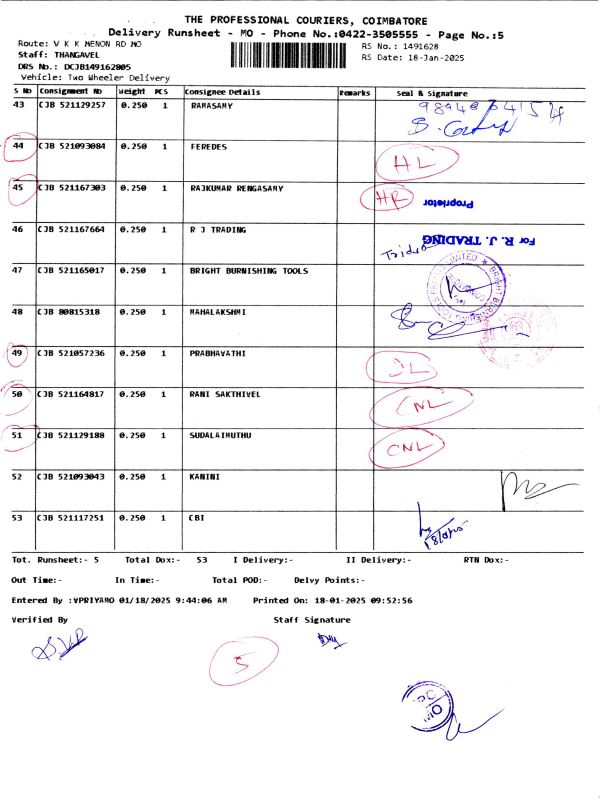 THE PROFESSIONAL COURIERS, COIMBATORE
Delivery Runsheet - MO - Phone No.:0422-3505555 - Page No.:5
Route: V K K MENON RD MO
RS No.: 1491628
Staff: THANGAVEL
RS Date: 18-Jan-2025
DRS No.: DCJB149162805
Vehicle: Two Wheeler Delivery
S No Consignment No Weight PCS Consignee Details Remarks Seal & Signature
43 CJB 521129257 0.250 1 RAMASAMY
44 CJB 521093084 0.250 1 FEREDES HL
45 CJB 521167303 0.250 1 RAJKUMAR RENGASAMY HR
Proprietor
46 CJB 521167664 0.250 1 R J TRADING
For R. J. TRADING
47 CJB 521165017 0.250 1 BRIGHT BURNISHING TOOLS
48 CJB 80815318 0.250 1 MAHALAKSHMI
49 CJB 521057236 0.250 1 PRABHAVATHI DL
50 CJB 521164817 0.250 1 RANI SAKTHIVEL CNL
51 CJB 521129188 0.250 1 SUDALAIMUTHU CNL
52 CJB 521093043 0.250 1 KANINI
53 CJB 521117251 0.250 1 CBI
Tot. Runsheet:- 5 Total Dox:- 53 I Delivery:- II Delivery:- RTN Dox:-
Out Time:- In Time:- Total POD:- Delvy Points:-
Entered By :VPRIYAMO 01/18/2025 9:44:06 AM Printed On: 18-01-2025 09:52:56
Verified By Staff Signature
5